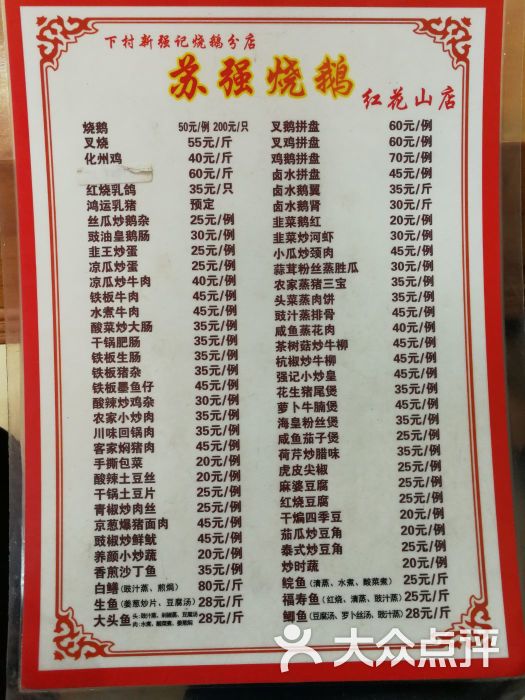 下村新强记烧鹅分店
苏强烧鹅
红花山店
烧鹅 50元/例 200元/只
叉烧 55元/斤
化州鸡 40元/斤
60元/斤
红烧乳鸽 35元/只
鸿运乳猪 预定
丝瓜炒鹅杂 25元/例
豉油皇鹅肠 30元/例
韭王炒蛋 25元/例
凉瓜炒蛋 25元/例
凉瓜炒牛肉 40元/例
铁板牛肉 45元/例
水煮牛肉 45元/例
酸菜炒大肠 35元/例
干锅肥肠 35元/例
铁板生肠 35元/例
铁板猪杂 35元/例
铁板墨鱼仔 45元/例
酸辣炒鸡杂 30元/例
农家小炒肉 35元/例
川味回锅肉 35元/例
客家焖猪肉 45元/例
手撕包菜 20元/例
酸辣土豆丝 20元/例
干锅土豆片 25元/例
青椒炒肉丝 25元/例
京葱爆猪面肉 45元/例
豉椒炒鲜鱿 45元/例
养颜小炒蔬 20元/例
香煎沙丁鱼 35元/例
白鳝(豉汁蒸、煎焗) 80元/斤
生鱼(姜葱炒片、豆腐汤) 28元/斤
大头鱼 头:豉汁蒸、剁椒蒸、豆腐汤 28元/斤
肉:水煮、酸菜煮、姜葱焗
叉鹅拼盘 60元/例
叉鸡拼盘 60元/例
鸡鹅拼盘 70元/例
卤水拼盘 45元/例
卤水鹅翼 35元/斤
卤水鹅肾 30元/斤
韭菜鹅红 20元/例
韭菜炒河虾 30元/例
小瓜炒颈肉 45元/例
蒜茸粉丝蒸胜瓜 30元/例
农家蒸猪三宝 35元/例
头菜蒸肉饼 35元/例
豉汁蒸排骨 45元/例
咸鱼蒸花肉 40元/例
茶树菇炒牛柳 45元/例
杭椒炒牛柳 45元/例
强记小炒皇 45元/例
花生猪尾煲 35元/例
萝卜牛腩煲 45元/例
海皇粉丝煲 35元/例
咸鱼茄子煲 25元/例
荷芹炒腊味 35元/例
虎皮尖椒 25元/例
麻婆豆腐 20元/例
红烧豆腐 25元/例
干煸四季豆 20元/例
茄瓜炒豆角 20元/例
泰式炒豆角 25元/例
炒时蔬 20元/例
鲩鱼(清蒸、水煮、酸菜煮) 25元/斤
福寿鱼(红烧、清蒸、豉汁蒸) 25元/斤
鲫鱼(豆腐汤、罗卜丝汤、豉汁蒸) 28元/斤
大众点评